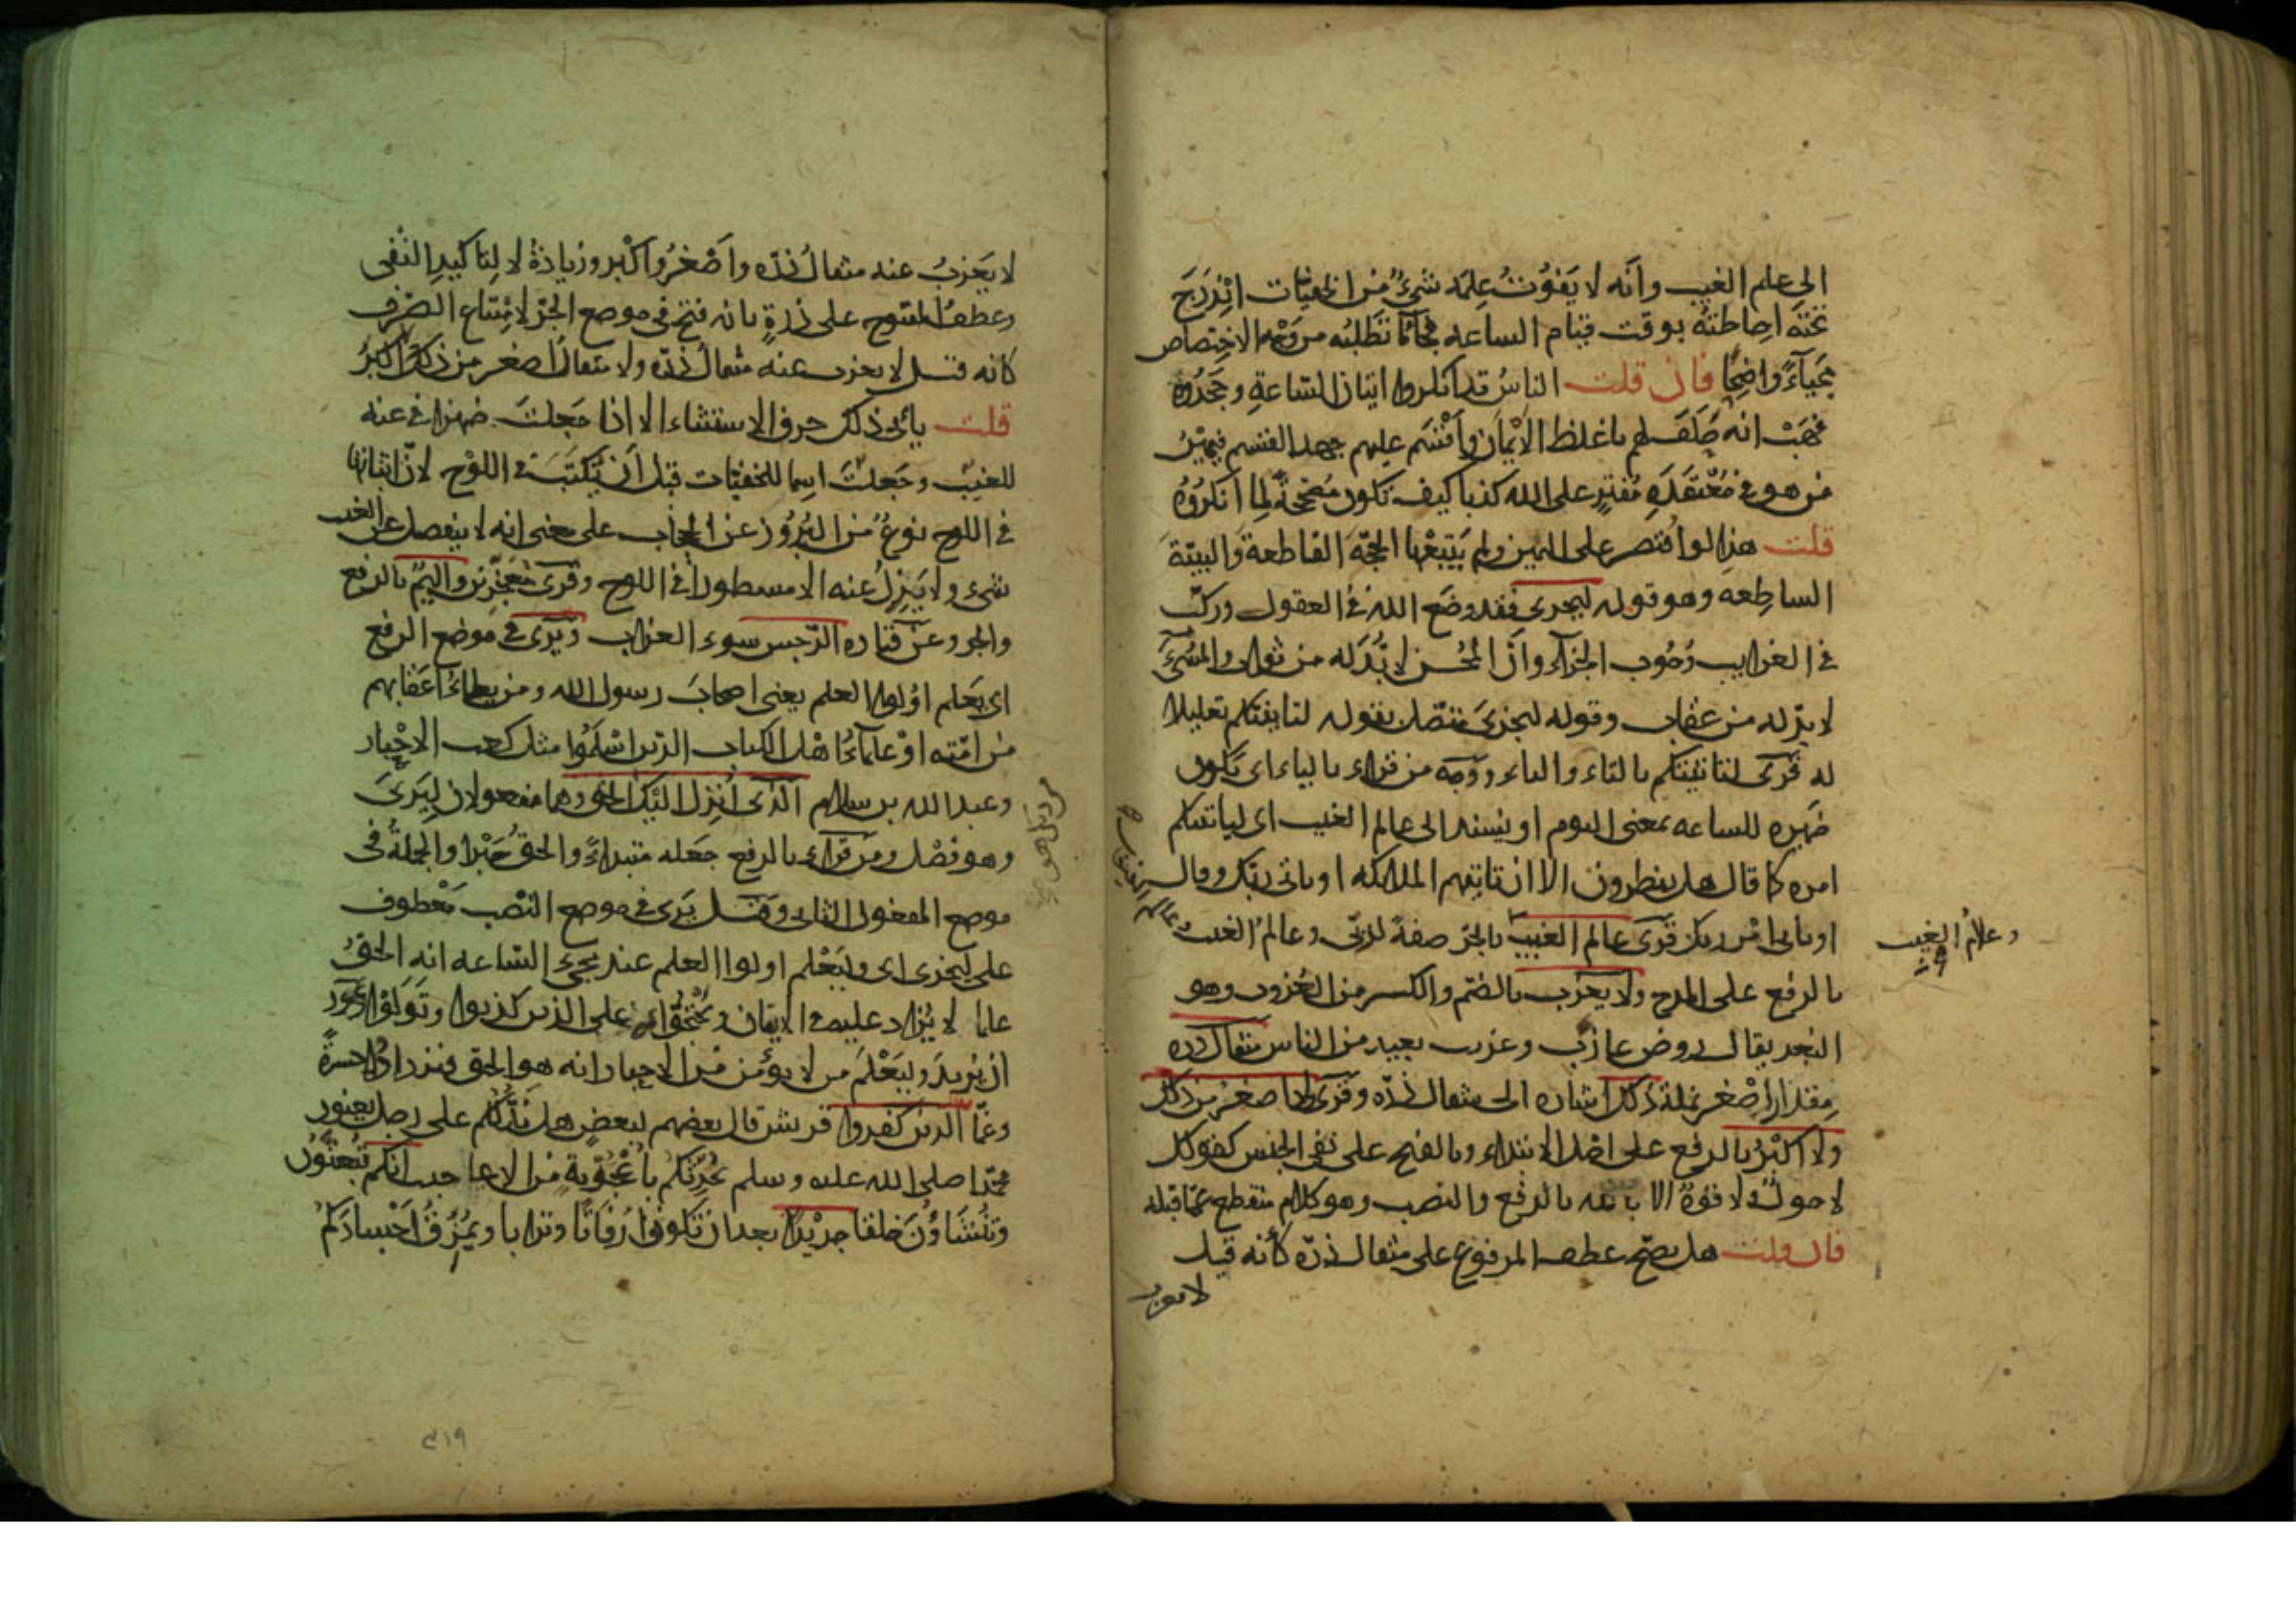 الى علم الغيب وانه لا يفوت علمه شىء من الخفيات اندرج
تحته احاطته بوقت قيام الساعه فجاء ما تطلبه من وجه الاختصاص
مجياءً واضحًا فان قلت الناس قد انكروا اتيان الساعة وجحدوه
فهب انه حلف لهم باغلظ الايمان واقسم عليهم جهد القسم فيمين
من هو فى معتقدهم مفترٍ على الله كذبا كيف تكون مصححة لما انكروه
قلت هذا لو اقتصر على اليمين ولم يتبعها الحجة القاطعة والبينة
الساطعه وهو قوله ليجزى فقد وضع الله فى العقول وركب
فى الغرايب وجوب الجزاء وان المحسن لا بد له من ثواب والمسىء
لا بد له من عقاب وقوله ليجزى متصل بقوله لتاتينكم تعليلا
له قرى لتاتينكم بالتاء والياء ووجه من قراء بالياء اى تكون
ضميره للساعه بمعنى اليوم او يسند الى عالم الغيب اى لياتينكم
امره كما قال هل ينظرون الا ان تاتيهم الملائكه او ياتى ربك وقال
او ياتى امر ربك قرى عالم الغيب بالجر صفة لربى وعالم الغيب
وعلام الغيب
بالرفع على المدح ولا يعزب بالضم والكسر من العزوب وهو
البعد يقال روض عازب وعزب بعيد من الناس مثقال ذره
مقدار اصغر نملة ذلك اشاره الى مثقال ذره وقرى ولا اصغر من ذلك
ولا اكبر بالرفع على اصل الابتداء وبالفتح على نفى الجنس كقولك
لا حول ولا قوة الا بالله بالرفع والنصب وهو كلام منقطع عما قبله
فان قلت هل يصح عطف المرفوع على مثقال ذرة كأنه قيل
لا يعزب
لا يعزب عنه مثقال ذره واصغر واكبر وزيادة لا لتاكيد النفى
وعطف المفتوح على ذرةٍ بانه فتح فى موضع الجر لامتناع الصرف
كانه قيل لا يعزب عنه مثقال ذره ولا مثقال اصغر من ذلك ولا اكبر
قلت يأبى ذلك حرف الاستثناء الا اذا جعلت ضميرا فى عنه
للغيب وجعلت اسما للخفيات قبل ان تكتب فى اللوح لان اثباتها
فى اللوح نوع من البروز عن الحجاب على معنى انه لا ينفصل عن الغيب
شىء ولا يزل عنه الا مسطورا فى اللوح وقرى معجزين واليم بالرفع
والجر وعن قتاده الرجس سوء العذاب ويرى فى موضع الرفع
اى يعلم اولوا العلم يعنى اصحاب رسول الله ومن يطاء اعقابهم
من امته او علماء اهل الكتاب الذين اسلموا مثل كعب الاحبار
وعبد الله بن سلام الذى انزل اليك الحق وهما مفعولان ليرى
وهو فصل ومن قراء بالرفع جعله مبتداءً والحق خبرا والجملة فى
موضع المفعول الثانى وقيل يرى فى موضع النصب معطوف
على ليجزى اى وليعلم اولوا العلم عند مجىء الساعه انه الحق
علما لا يزاد عليه فى الايقان ويحتجوا به على الذين كذبوا وتولوا ويجوز
ان يريد وليعلم من لا يؤمن من الاحبار انه هو الحق فيزدادوا حسرة
وغما الذين كفروا قريش قال بعضهم لبعض هل ندلكم على رجل يعنون
محمدا صلى الله عليه وسلم يحدثكم باعجوبة من الاعاجيب انكم تبعثون
وتنشاون خلقا جديدا بعد ان تكونوا رفاتا وترابا ويمزق اجسادكم
٣١٩